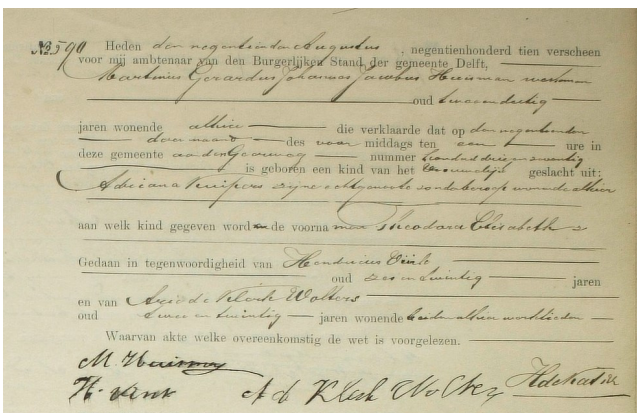 No 590 Heden den negentienden Augustus, negentienhonderd tien verscheen
voor mij ambtenaar van den Burgerlijken Stand der gemeente Delft,
Martinus Gerardus Johannes Jacobus Huisman werkman
oud twee en dertig
jaren wonende alhier die verklaarde dat op den negentienden
dezer maand des voor middags ten een ure in
deze gemeente aan den Geerweg nummer honderd drie en twintig
is geboren een kind van het vrouwelijk geslacht uit:
Adriana Kuipers zijne echtgenoote zonder beroep wonende alhier
aan welk kind gegeven word en de voornamen Theodora Elisabeth
Gedaan in tegenwoordigheid van Hendricus Vink
oud zes en twintig jaren
en van Arie de Klerk Wolters
oud twee en twintig jaren wonende beiden alhier werklieden
Waarvan akte welke overeenkomstig de wet is voorgelezen.
M. Huisman
H. Vink A d Klerk Wolters